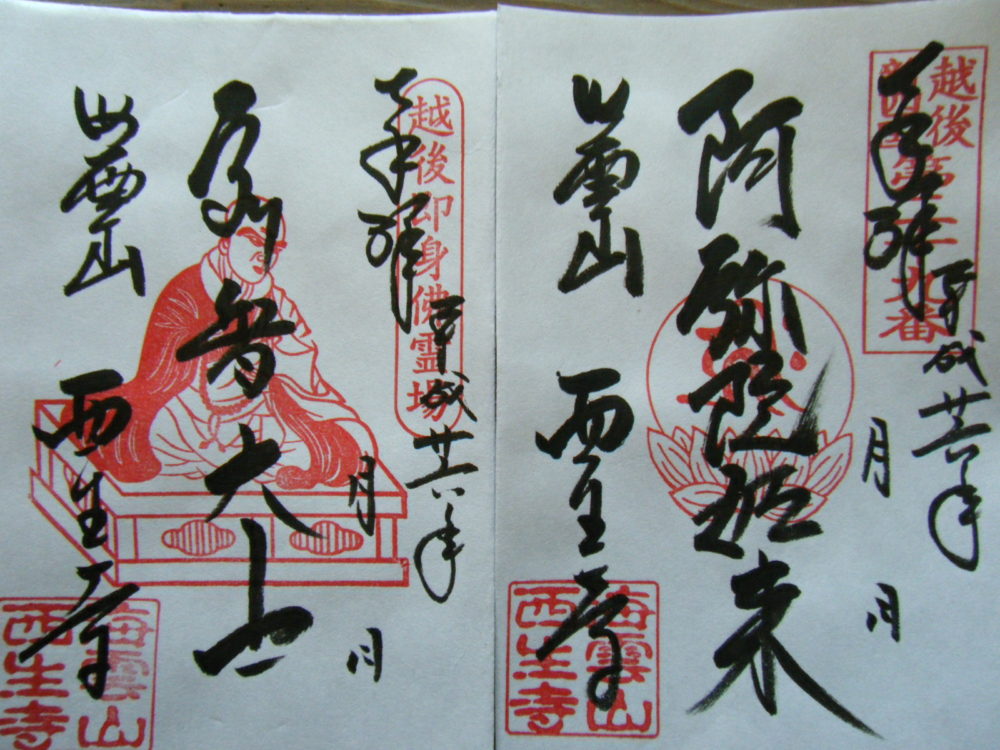 越後
九番
奉拝
平成廿六年
月
月
阿弥陀如来
海雲山
西生寺
海雲山
西生寺
越後即身佛霊場
奉拝
平成廿六年
月
月
智大士
海雲山
西生寺
海雲山
西生寺